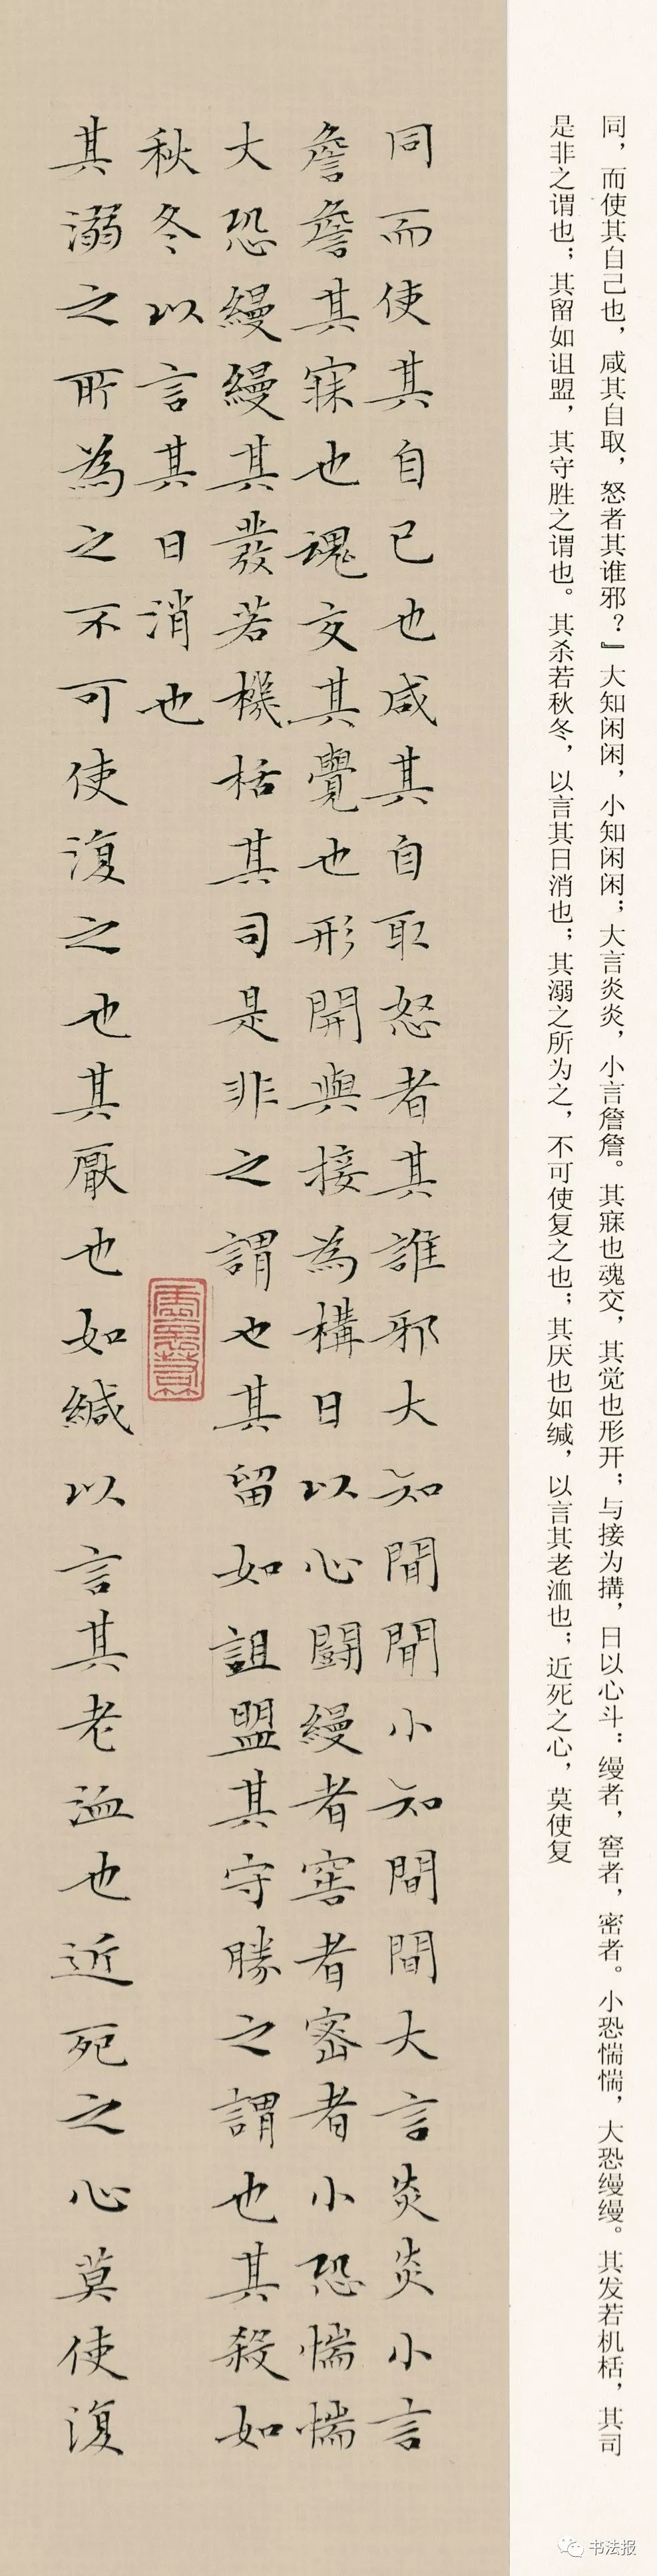 同，而使其自己也，咸其自取，怒者其谁邪？』大知闲闲，小知闲闲；大言炎炎，小言詹詹。其寐也魂交，其觉也形开；与接为搆，日以心斗：缦者，窖者，密者。小恐惴惴，大恐缦缦。其发若机栝，其司
是非之谓也；其留如诅盟，其守胜之谓也。其杀若秋冬，以言其日消也；其溺之所为之，不可使复之也；其厌也如缄，以言其老洫也；近死之心，莫使复
同而使其自己也咸其自取怒者其誰邪大知閒閒小知間間大言炎炎小言
詹詹其寐也魂交其覺也形開與接為構日以心鬪縵者窖者密者小恐惴惴
大恐縵縵其發若機栝其司是非之謂也其留如詛盟其守勝之謂也其殺如
秋冬以言其日消也
其溺之所為之不可使復之也其厭也如緘以言其老洫也近死之心莫使復
书法报